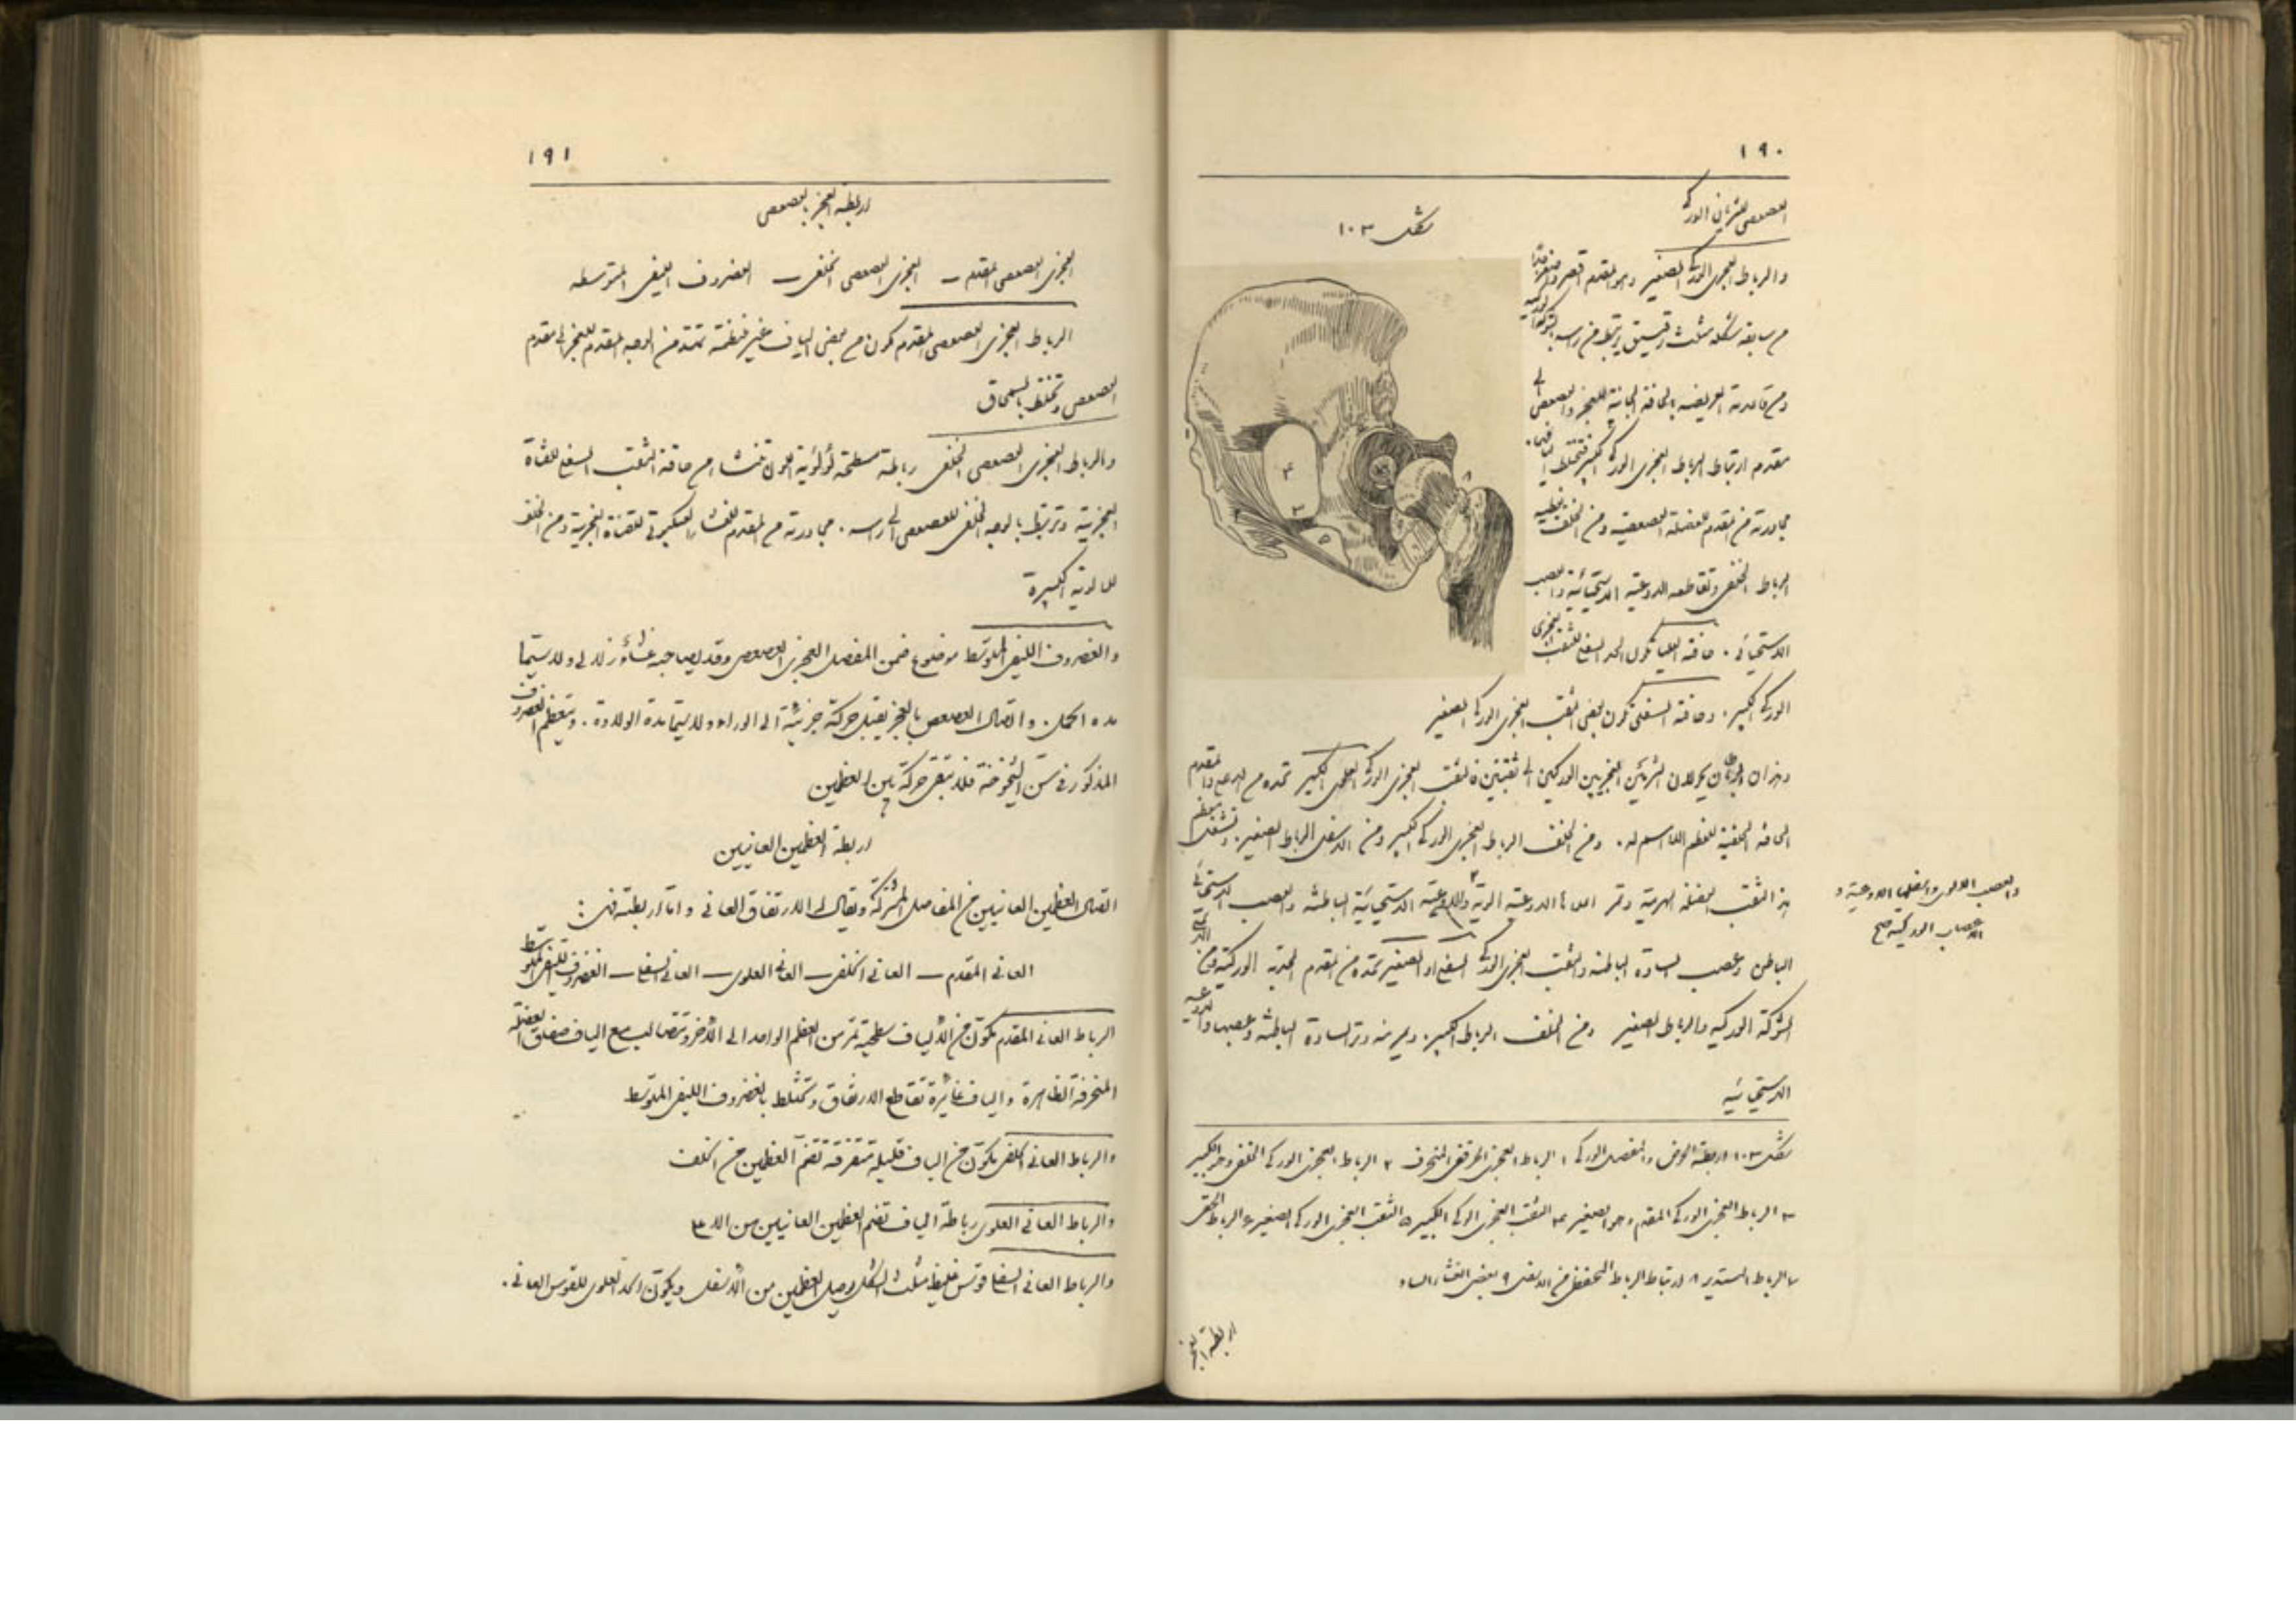 ١٩٠
العصعصى للشريان الوركى
شكل ١٠٣
والرباط العجزى الوركى الصغير وهو المقدم اقصر واصغر جدًا
من سابقه شكله مثلث رقيق يرتبط من راسه بالشوكة الوركية
ومن قاعدته العريضه بالحافة الجانبية للعجز والعصعص الى
مقدم ارتباط الرباط العجزى الوركى الكبير فتختلط اليافهما.
مجاورته من المقدم للعضلة العصعصية ومن الخلف يغطيه
الرباط الخلفى وتقاطعه الاوعية الاستحيائية والعصب
الاستحيائى. حافته العليا تكون الحد السفلى للثقب العجزى
الوركى الكبير. وحافته السفلى تكون بعض الثقب العجزى الوركى الصغير
وهذان الرباطان يحولان الشرمين العجزيين الوركيين الى ثقبتين فالثقب العجزى الوركى العلوى الكبير تحده من الاعلى والمقدم
الحافة الخلفية للعظم اللااسم له. ومن الخلف الرباط العجزى الوركى الكبير ومن الاسفل الرباط الصغير. وتشغل معظم
هذا الثقب العضلة الهرمية وتمر اعلاها الاوعية الالوية والاوعية الاستحيائية الباطنة والعصب الاستحيائى
والعصب الالوى واسفلها الاوعية و
الاعصاب الوركية صح
الباطن وعصب السادة الباطنة والثقب العجزى الوركى السفلى او الصغير تحده من المقدم الحدبة الوركية ومن الاعلى
الشوكة الوركيه والرباط الصغير ومن الخلف الرباط الكبير. ويمر منه وتر السادة الباطنة وعصبها والاوعيه
الاستحيائيه
شكل ١٠٣ اربطة الحوض والمفصل الوركى ١ الرباط العجزى الحرقفى المنحرف ٢ الرباط العجزى الوركى الخلفى وهو الكبير
٣ الرباط العجزى الوركى المقدم وهو الصغير ٤ الثقب العجزى الوركى الكبير ٥ الثقب العجزى الوركى الصغير ٦ الرباط الحقى
٧ الرباط المستدير ٨ ارتباط الرباط المحفظى من الاسفل ٩ بعض الغشاء الساد
اربطة العجز
١٩١
اربطة العجز بالعصعص
العجزى العصعصى المقدم — العجزى العصعصى الخلفى — الغضروف الليفى المتوسط
الرباط العجزى العصعصى المقدم مكون من بعض الياف غير منتظمة تمتد من الوجه المقدم للعجز الى مقدم
العصعص وتختلط بالسمحاق
والرباط العجزى العصعصى الخلفى رباطة مسطحة لؤلؤية اللون تنشا من حافة الثقب السفلى للقناة
العجزية وترتبط بالوجه الخلفى للعصعص الى راسه. مجاورته من المقدم للغشاء العنكبوتى للقناة العجزية ومن الخلف
للالوية الكبيرة
والغضروف الليفى المتوسط موضوع ضمن المفصل العجزى العصعصى وقد يصاحبه غشاء زلالى ولاسيما
مده الحمل. واتصال العصعص بالعجز يقبل حركة جزئية الى الوراء ولاسيما مدة الولادة. ويتعظم الغضروف
المذكور فى سن الشيخوخة فلا تبقى حركة بين العظمين
اربطة العظمين العانيين
اتصال العظمين العانيين من المفاصل المشتركة ويقال له الارتفاق العانى واما اربطته فهى:
العانى المقدم — العانى الخلفى — العانى العلوى — العانى السفلى — الغضروف الليفى المتوسط
الرباط العانى المقدم مكوّن من الياف سطحية تمر من العظم الواحد الى الآخر وتتصالب مع الياف صفاق العضلة
المنحرفة الظاهرة والياف غائرة تقاطع الارتفاق وتختلط بالغضروف الليفى المتوسط
والرباط العانى الخلفى مكوّن من الياف قليلة متفرقة تضم العظمين من الخلف
والرباط العانى العلوى رباطة الياف تضم العظمين العانيين من الاعلى
والرباط العانى السفلى قوس غليظ مثلث الشكل يوصل العظمين من الاسفل ويكوّن الحد العلوى للقوس العانى.